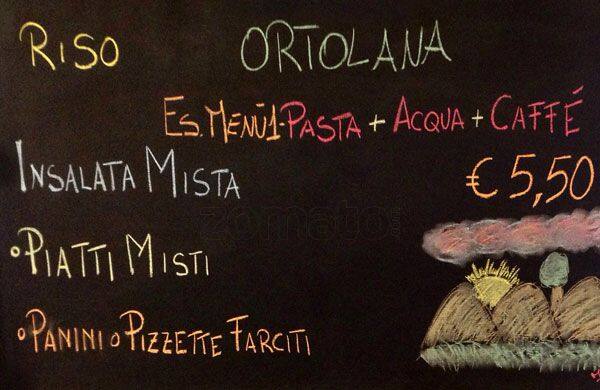 RISO ORTOLANA
ES. MENÙ1-PASTA + ACQUA + CAFFÉ
INSALATA MISTA € 5,50
PIATTI MISTI
PANINI o PIZZETTE FARCITI
zomato